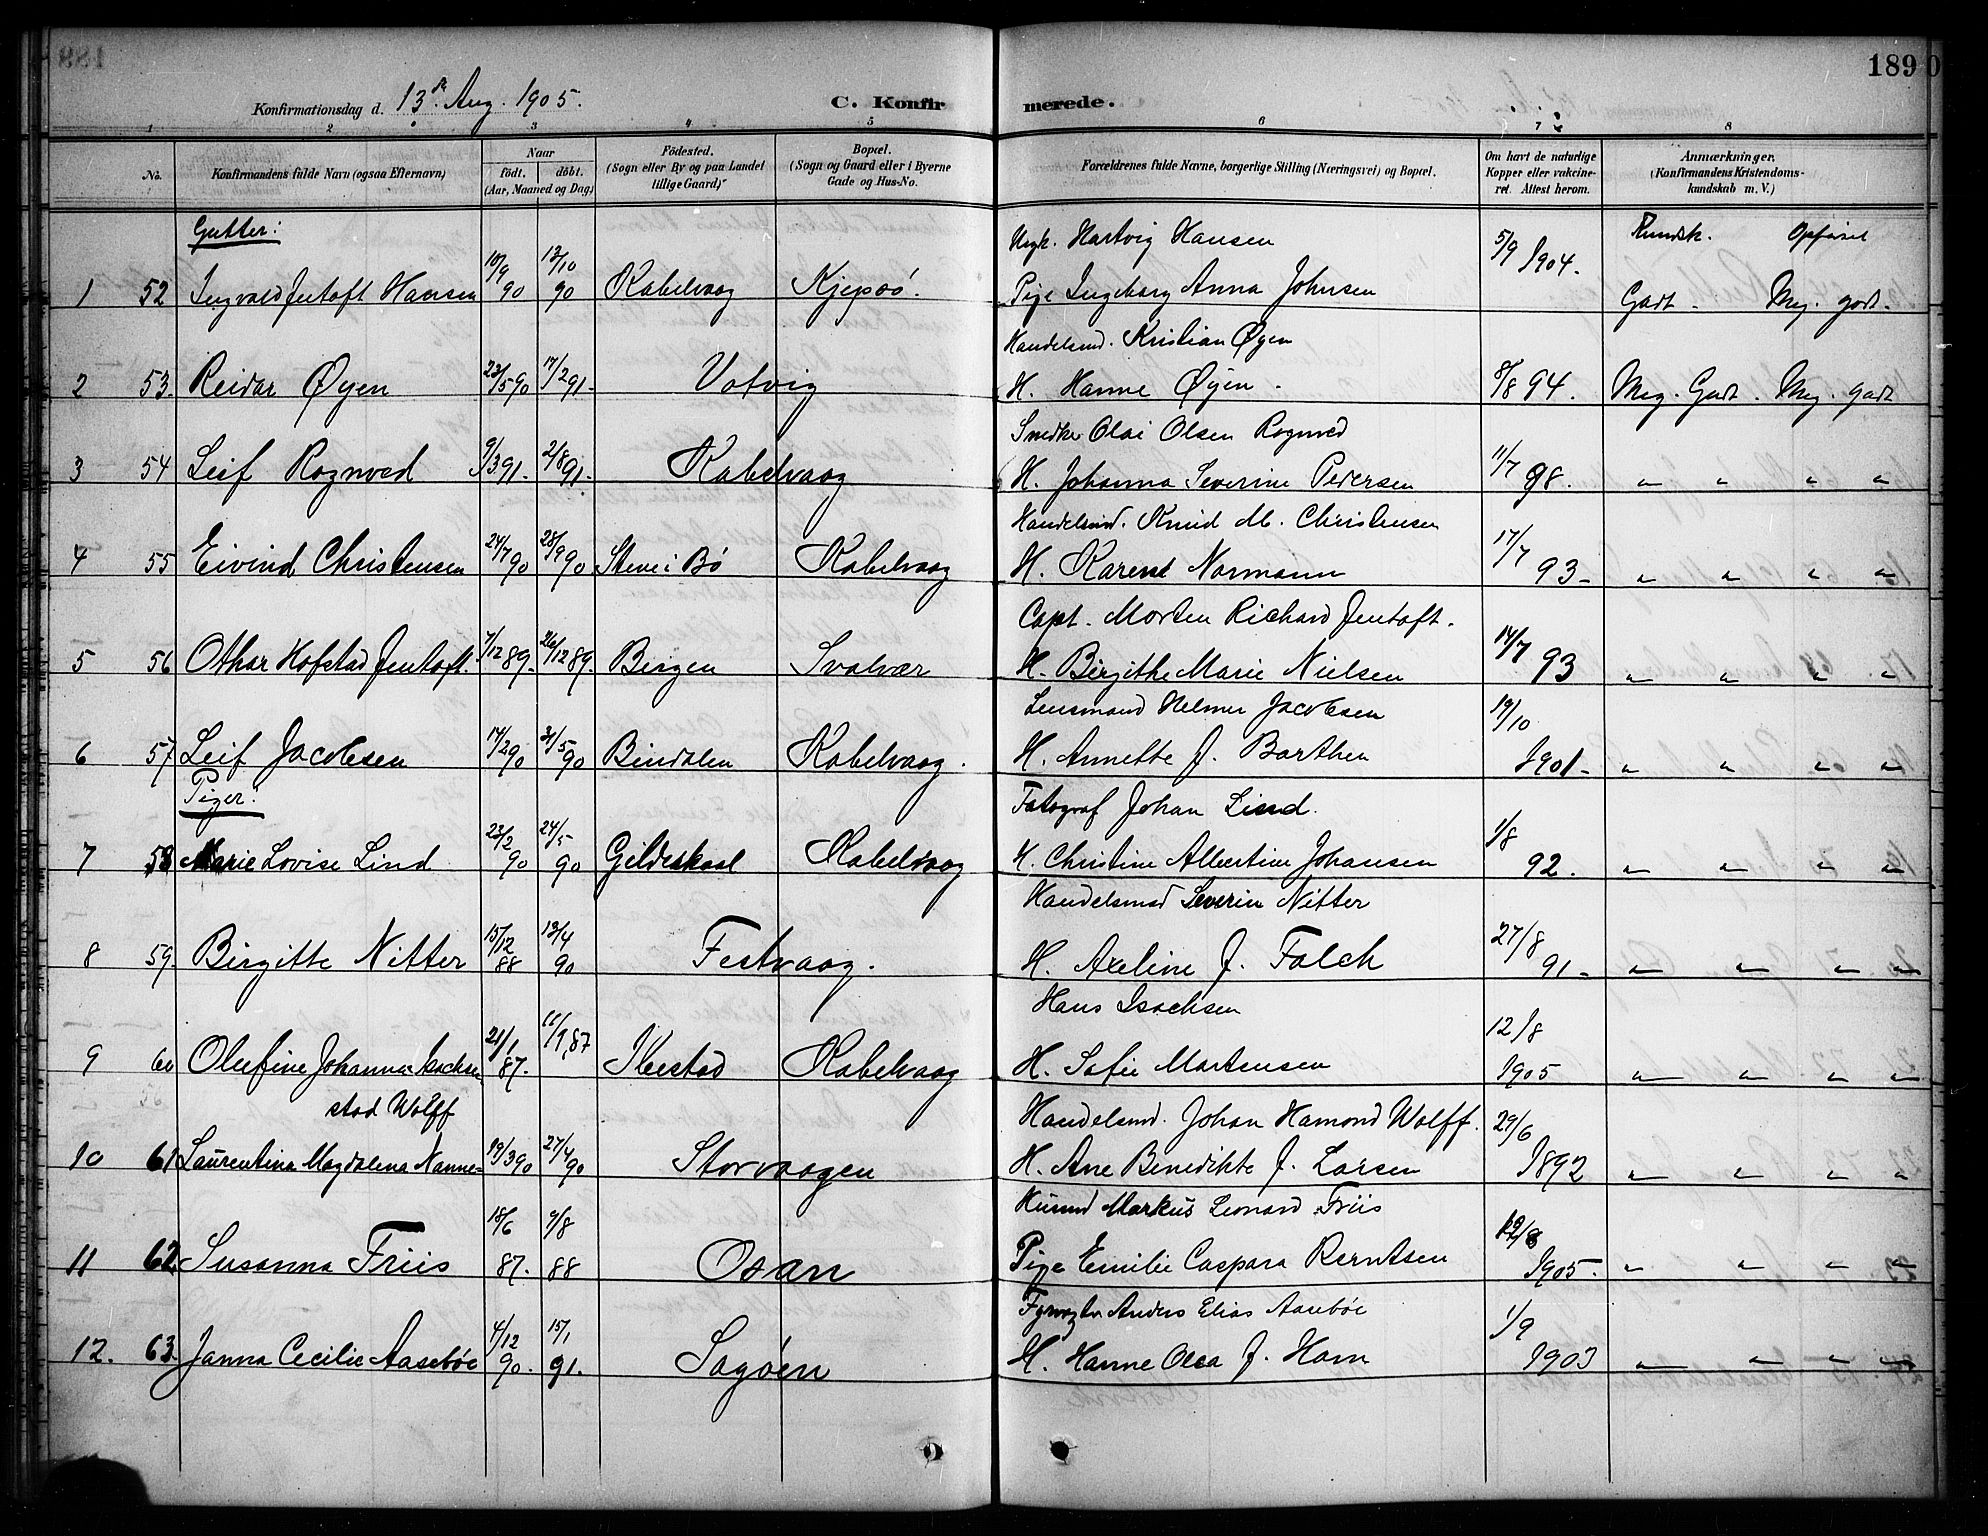 189
Konfirmationsdag d. 13de Aug. 1905.
C. Konfir merede.
1 2 3 4 5 6 7 8
No.
Konfirmandens fulde Navn (ogsaa Efternavn)
Naar
födt. döbt.
(Aar, Maaned og Dag)
Födested.
(Sogn eller By og paa Landet
tillige Gaard)
Bopæl.
(Sogn og Gaard eller i Byerne
Gade og Hus-No.
Forældrenes fulde Navne, borgerlige Stilling (Næringsvei) og Bopæl.
Om havt de naturlige
Kopper eller vakcine-
ret. Attest herom.
Anmærkninger.
(Konfirmandens Kristendoms-
kundskab m. V.)
Gutter:
Ungk. Hartvig Hansen 5/9 Kundsk. Opførsel
1 52 Ingvald Jentoft Hansen 10/9 90 12/10 90 Kabelvaag Kjepsö. Pige Ingeborg Anna Johnsen 1904. Godt - Meg. godt -
Handelsmd. Kristian Øyen
2 53. Reidar Øyen 23/5 90 17/2 91. Votvig H. Hanne Øyen. 8/8 94. Meg. Godt. Meg. godt
Snedker Olai Olsen Rognved
3 54 Leif Rognved 9/3 91. 2/8 91. Kabelvaag H. Johanna Severine Pedersen 11/7 98. " " " "
Handelsmd. Knud M. Christensen
4 55 Eivind Christensen 24/7 90 28/9 90 Steine i Bö Kabelvaag H. Karen Normann 17/7 93 - " " " "
Capt. Morten Richard Jentoft.
5 56 Othar Hofstad Jentoft. 7/12 89. 26/12 89. Bergen Svolvær H. Birgithe Marie Nielsen 14/7 93 " " " "
Lensmand Helmer Jacobsen 19/10
6 57 Leif Jacobsen 17/2 90 31/5 90 Bindalen Kabelvaag. H. Annette J. Barthen 1901 - " " " "
Piger:
Fotograf Johan Lind.
7 58 Marie Lovise Lind 23/2 90 24/5 90 Gildeskaal Kabelvaag H. Christine Albertine Johansen 1/8 92. " " " "
Handelsmd Severin Nitter
8 59. Birgitte Nitter 15/12 88 13/4 90 Festvaag. H. Axeline J. Falch 27/8 91 - " " " "
Hans Isachsen 12/8
9 60 Olufine Johanna Isachsen 21/1 87. 11/9 87 Ibestad Kabelvaag H. Sofie Martensen 1905 " " " "
stad Wolff
Handelsmd. Johan Hamond Wolff. 29/6
10 61 Laurentine Magdalena Nanne= 19/3 90 27/4 90 Storvaagen H. Ane Benedikte J. Larsen 1892 " " " "
Husmd Markus Leonard Friis
11 62. Susanna Friis 18/6 87. 9/8 88 Osan Pige Emilie Caspara Berntsen 12/8 1905. " " " "
Fyrvogter Anders Elias Aasebøe
12. 63. Janna Cecilie Aasebøe 4/12 90. 15/1 91. Sagöen H. Hanne Olea J. Horn 1/9 1903 " " " "